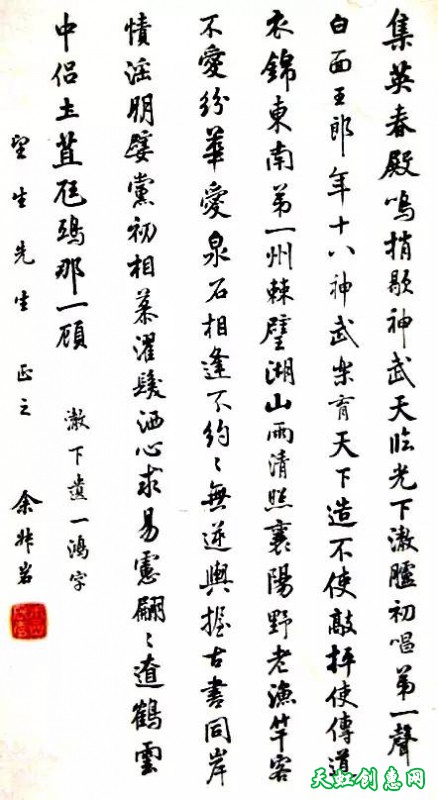 集英春殿鳴捎歇神武天臨光下澈臚初唱第一聲
白面玉郎年十八神武樂育天下造不使敲抨使傳道
衣錦東南第一州棘璧湖山兩清照襄陽野老漁竿客
不愛紛華愛泉石相逢不約〻無逆輿握古書同岸
幘淫朋嬖黨初相慕濯髮洒心求易慮翩〻遼鶴雲
中侶土苴尫鴟那一顧 澈下遺一鴻字
望生先生 正之 余叔岩
天虹创意网